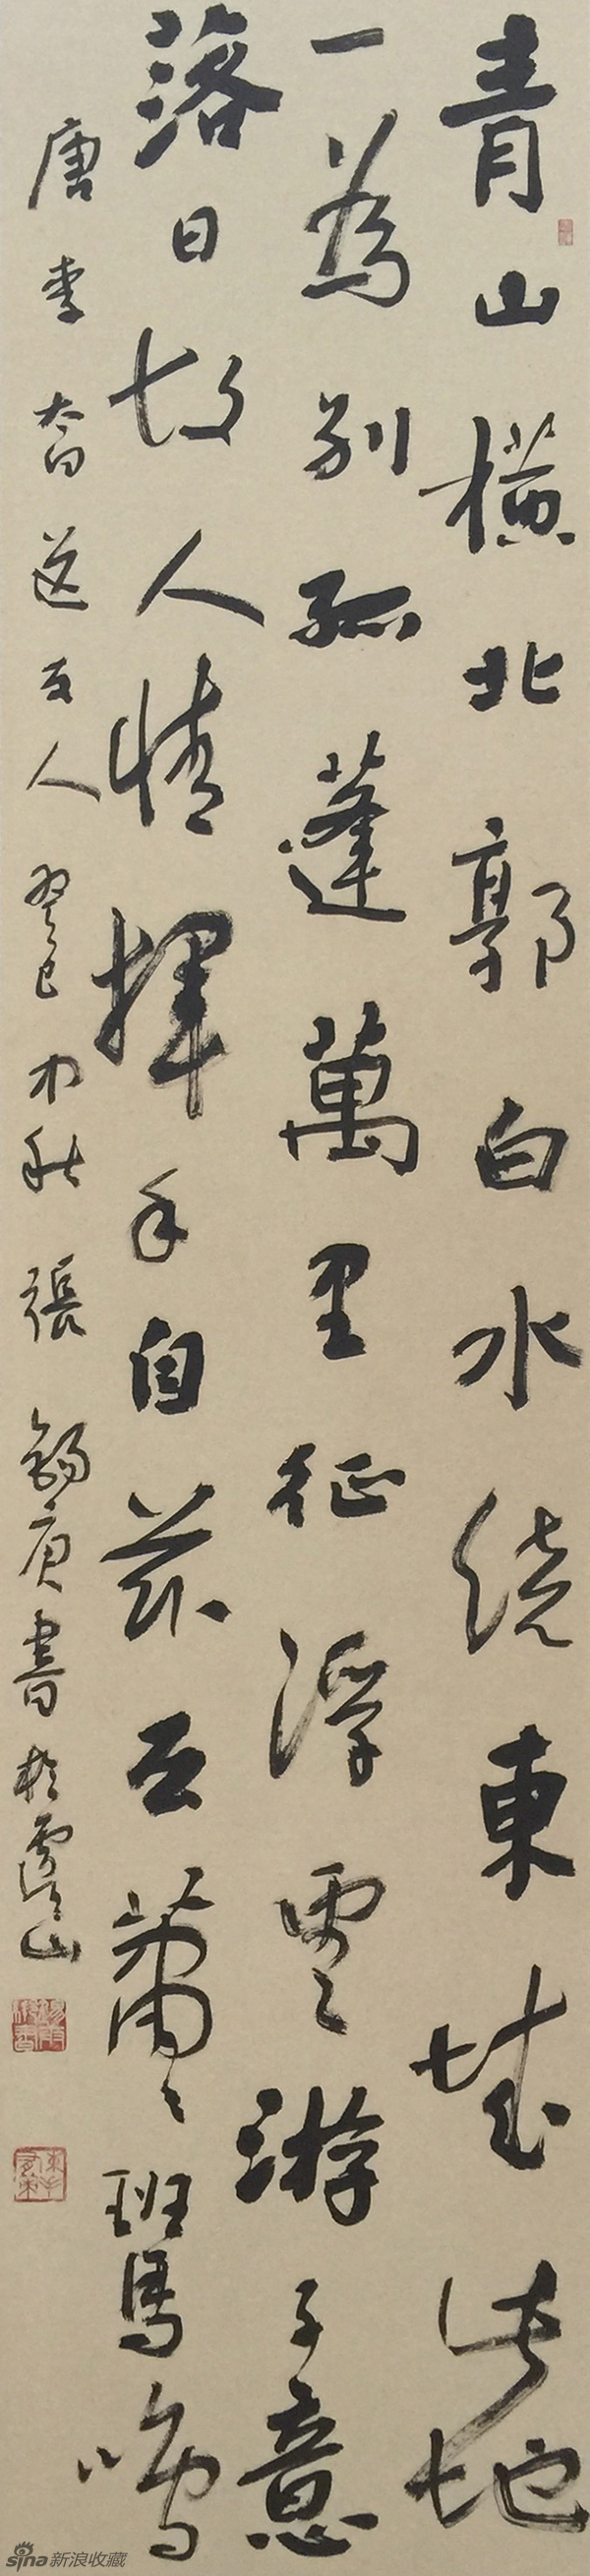 青山橫北郭白水繞東城此地
一為別孤蓬萬里征浮雲游子意
落日故人情揮手自茲去蕭〻班馬鳴
唐李太白送友人癸巳中秋張錫庚書於虞山
sina新浪收藏